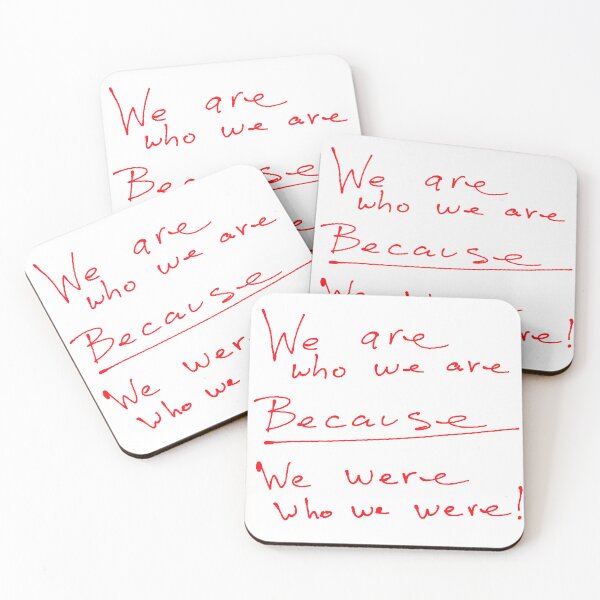 We are
who we are
Because
We are
who we are
Because
We are
who we are
Because
We were
who we
We are
who we are
Because
We were
who we were!